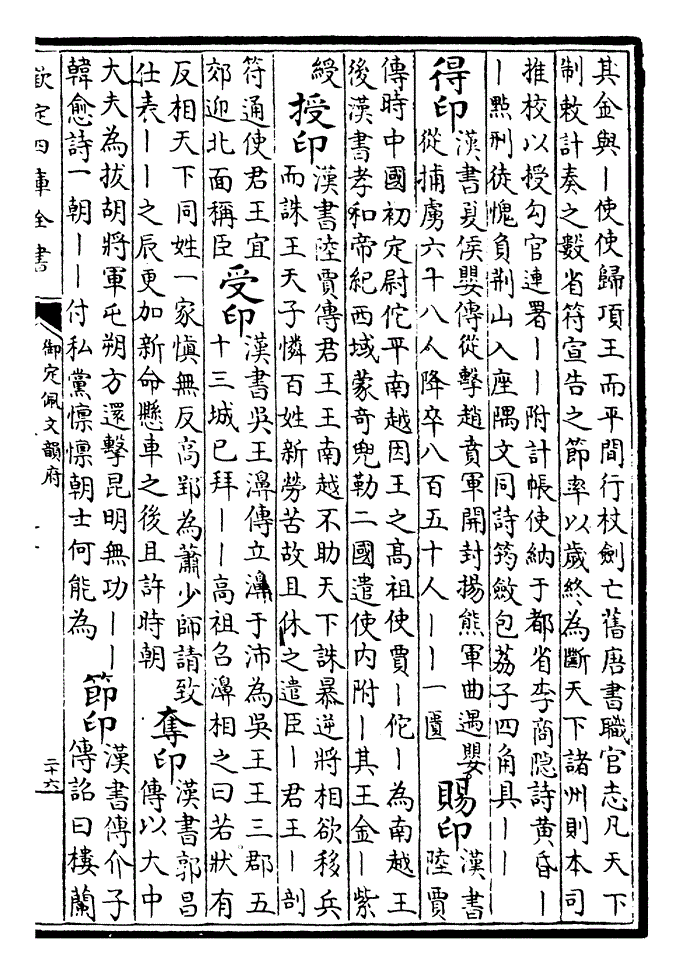 其金與｜使使歸項王而平間行杖劍亡舊唐書職官志凡天下
制敕計奏之數省符宣告之節率以歲終為斷天下諸州則本司
推校以授勾官連署｜｜附計帳使納于都省李商隱詩黃昏｜
｜點刑徒愧負荆山入座隅文同詩筠籢包荔子四角具｜｜
得印
漢書夏侯嬰傳從擊趙賁軍開封揚熊軍曲遇嬰
從捕虜六十八人降卒八百五十人｜｜一匱
賜印
漢書
陸賈
傳時中國初定尉佗平南越因王之高祖使賈｜佗｜為南越王
後漢書孝和帝紀西域蒙奇兜勒二國遣使內附｜其王金｜紫
綬
授印
漢書陸賈傳君王王南越不助天下誅暴逆將相欲移兵
而誅王天子憐百姓新勞苦故且休之遣臣｜君王｜剖
符通使君王宜
郊迎北面稱臣
受印
漢書吳王濞傳立濞于沛為吳王王三郡五
十三城已拜｜｜高祖召濞相之曰若狀有
反相天下同姓一家慎無反高郢為蕭少師請致
仕表｜｜之辰更加新命懸車之後且許時朝
奪印
漢書郭昌
傳以大中
大夫為拔胡將軍屯朔方還擊昆明無功｜｜
韓愈詩一朝｜｜付私黨懍懍朝士何能為
節印
漢書傳介子
傳詔曰樓蘭
欽定四庫全書
御定佩文韻府
二十六